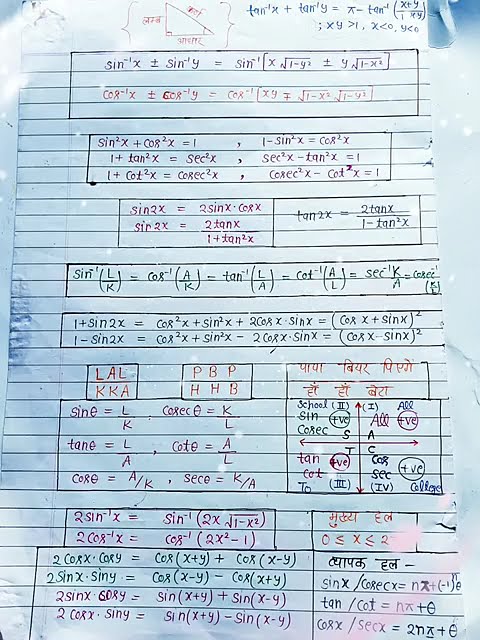 लम्ब
कर्ण
आधार
tan⁻¹x + tan⁻¹y = π - tan⁻¹(x+y / 1-xy)
; xy>1, x<0, y<0
sin⁻¹x ± sin⁻¹y = sin⁻¹[x√1-y² ± y√1-x²]
cos⁻¹x ± cos⁻¹y = cos⁻¹[xy ∓ √1-x² √1-y²]
sin²x + cos²x = 1 , 1-sin²x = cos²x
1+tan²x = sec²x , sec²x - tan²x = 1
1+cot²x = cosec²x , cosec²x - cot²x = 1
sin2x = 2sinx·cosx
sin2x = 2tanx / 1+tan²x
tan2x = 2tanx / 1-tan²x
sin⁻¹(L/K) = cos⁻¹(A/K) = tan⁻¹(L/A) = cot⁻¹(A/L) = sec⁻¹K/A = cosec⁻¹(K/L)
1+sin2x = cos²x + sin²x + 2cosx·sinx = (cosx + sinx)²
1-sin2x = cos²x + sin²x - 2cosx·sinx = (cosx - sinx)²
LAL
KKA
PBP
HHB
पापा बियर पिएगें
हाँ हाँ बेटा
sinθ = L/K , cosecθ = K/L
tanθ = L/A , cotθ = A/L
cosθ = A/K , secθ = K/A
School (II) (I) All
Sin +ve All +ve
Cosec S A
T C
tan +ve Cos +ve
cot sec
To (III) (IV) College
2sin⁻¹x = sin⁻¹(2x√1-x²)
2cos⁻¹x = cos⁻¹(2x²-1)
मुख्य हल
0 ≤ x ≤ 2
2cosx·cosy = cos(x+y) + cos(x-y)
2sinx·siny = cos(x-y) - cos(x+y)
2sinx·cosy = sin(x+y) + sin(x-y)
2cosx·siny = sin(x+y) - sin(x-y)
व्यापक हल -
sinx/cosecx = nπ+(-1)ⁿθ
tan/cot = nπ+θ
cosx/secx = 2nπ±θ